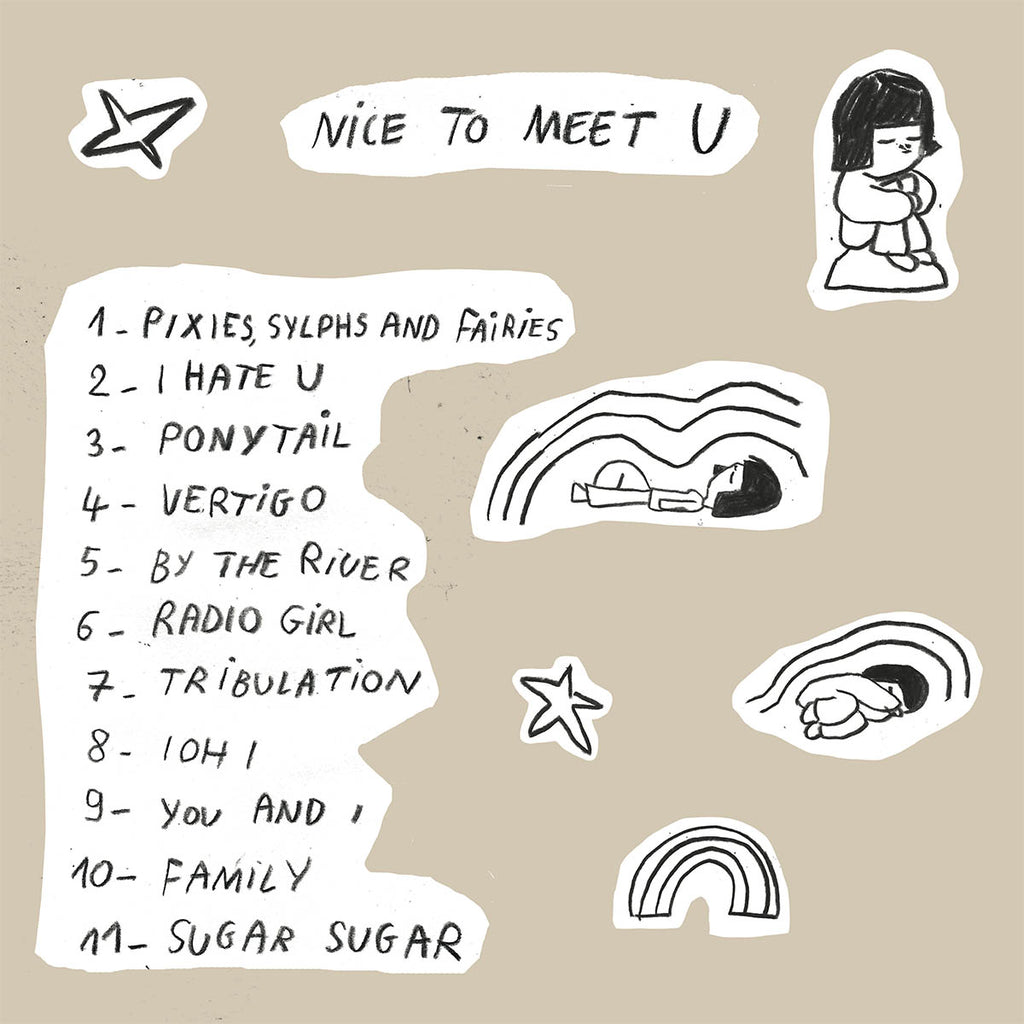 NiCE TO MEET U
1 - PIXIES, SYLPHS AND FAiRiES
2 - I HATE U
3 - PONYTAiL
4 - VERTiGO
5 - BY THE RiVER
6 - RADIO GiRL
7 - TRiBULATiON
8 - I OH I
9 - YOU AND I
10 - FAMiLY
11 - SUGAR SUGAR